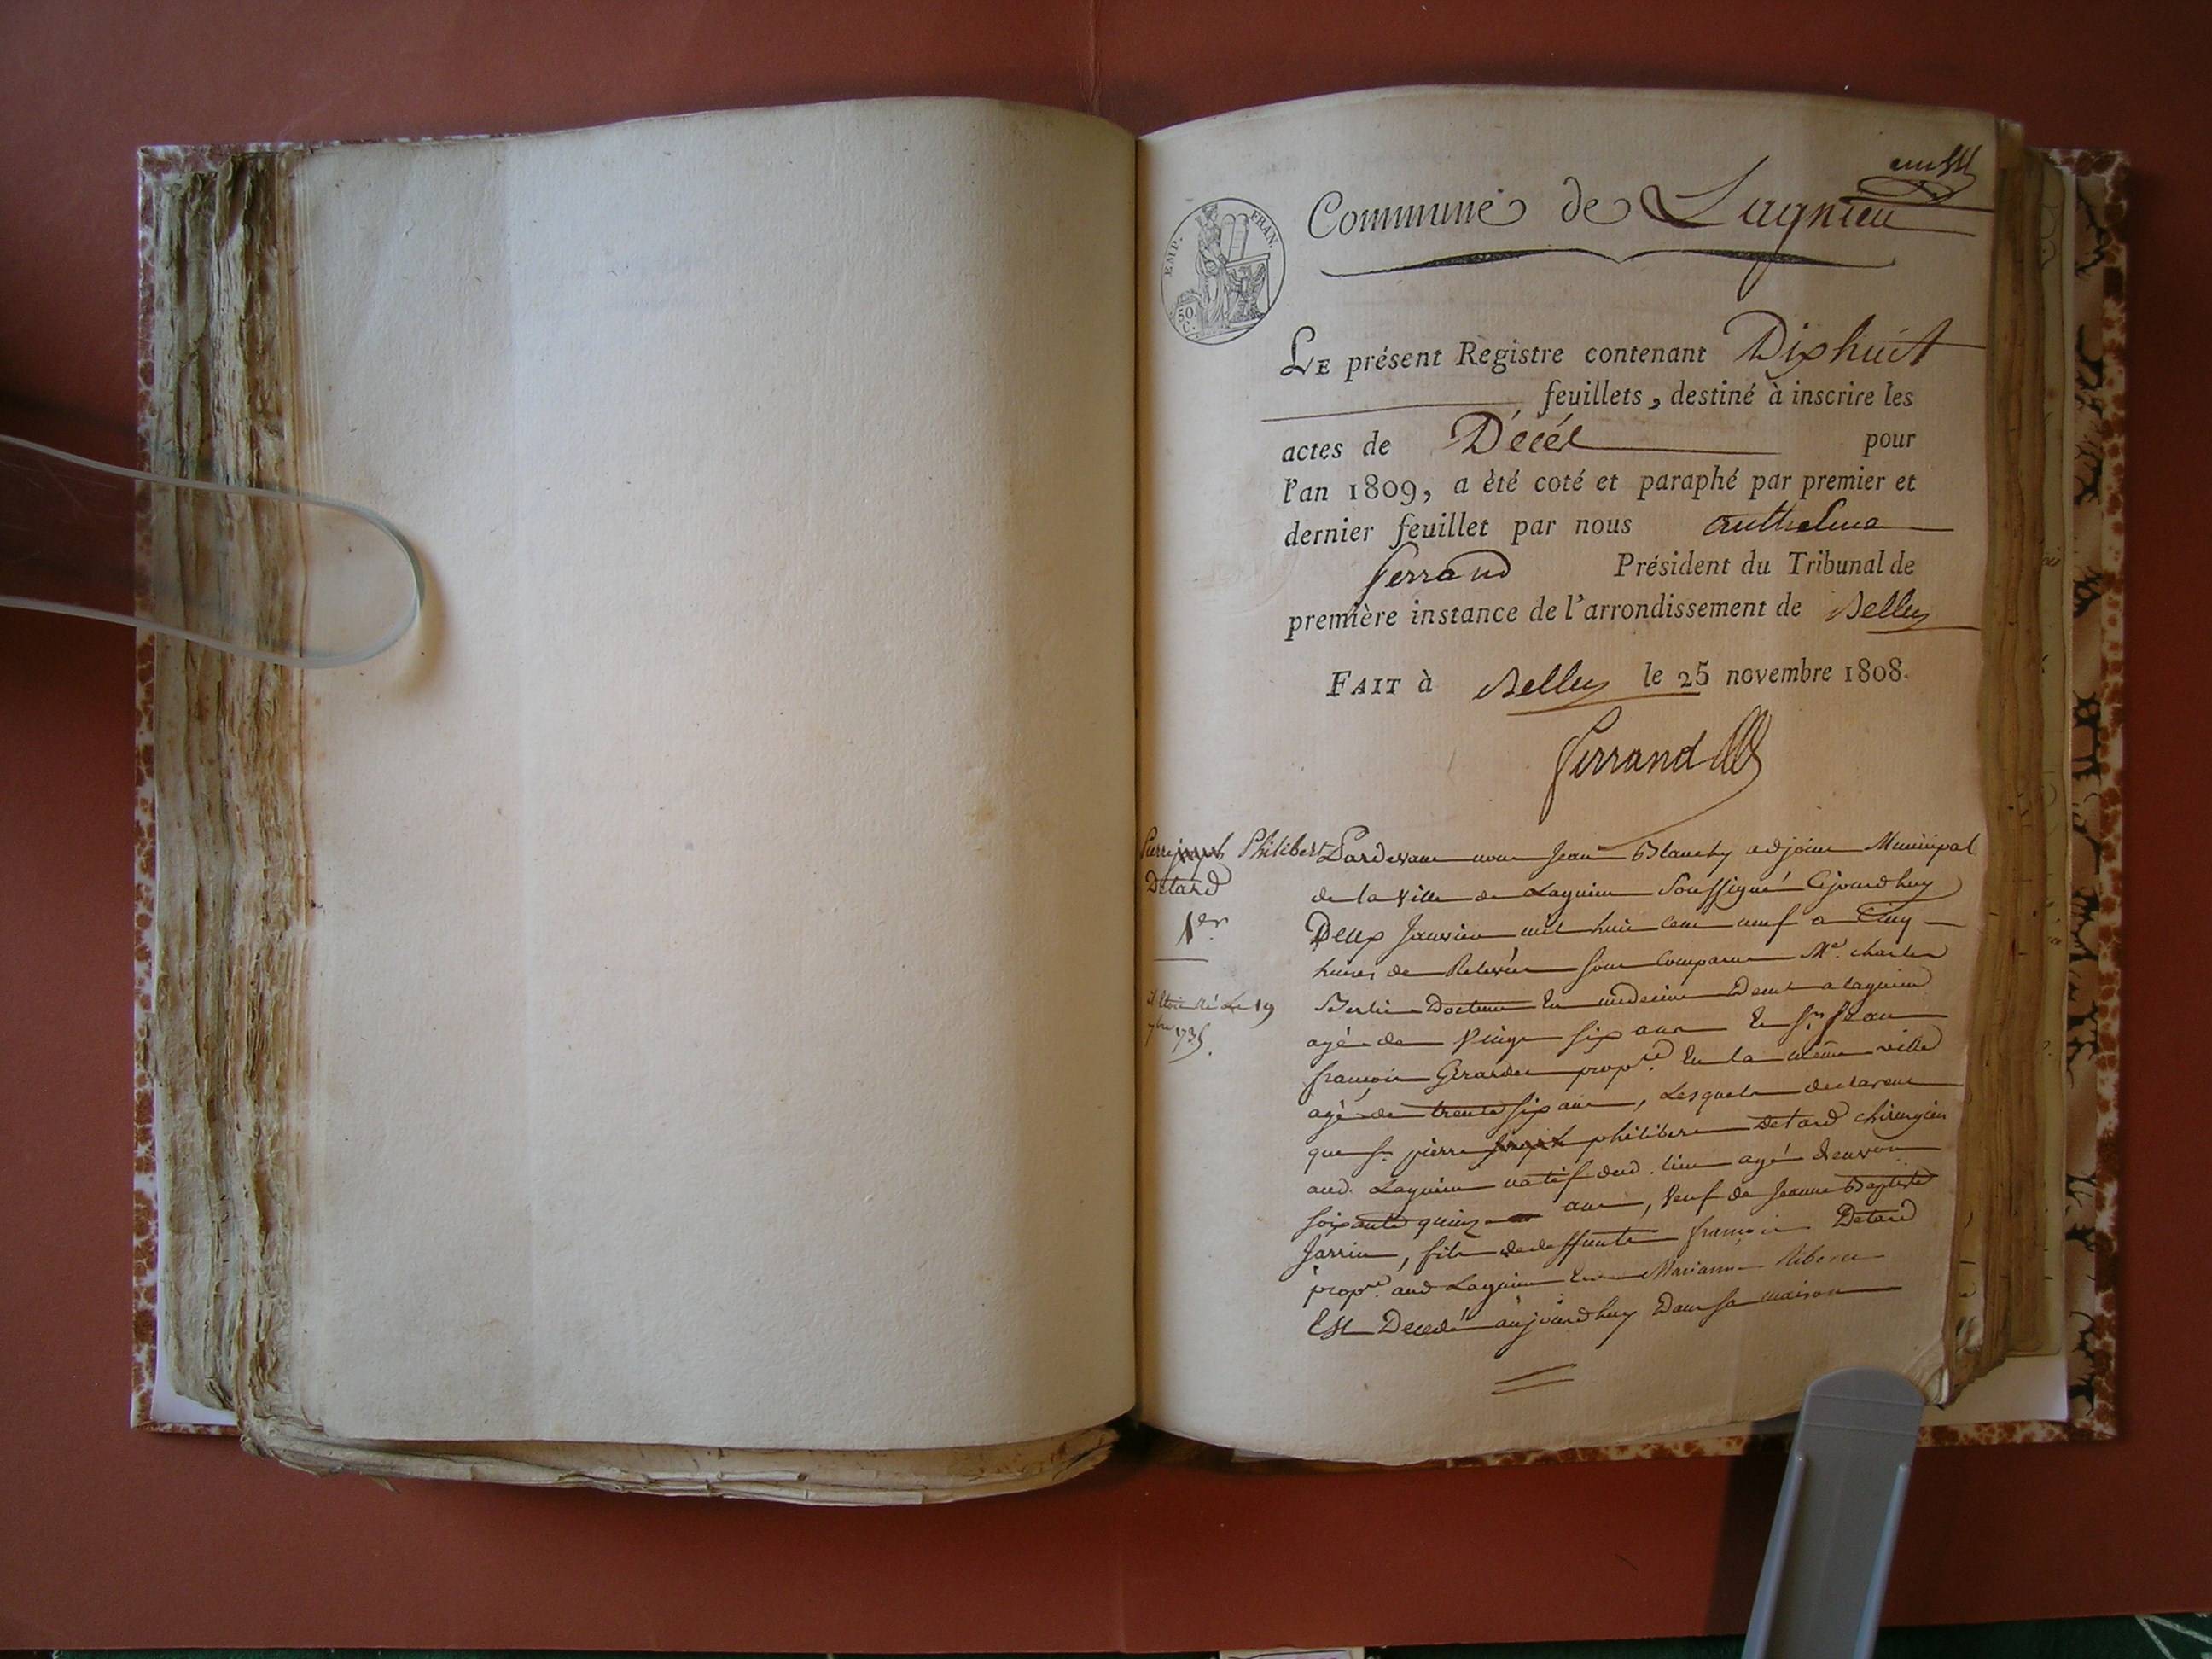 Commune de Lagnieu
EMP. FRAN.
50
C.
LE présent Registre contenant Dixhuit
feuillets, destiné à inscrire les
actes de Décés pour
l'an 1809, a èté coté et paraphé par premier et
dernier feuillet par nous anthelme
ferrand Président du Tribunal de
première instance de l'arrondissement de Belley
FAIT à Belley le 25 novembre 1808.
ferrand
Pierre joseph Philibert
Detard
1er
il Etoit né Le 19
7bre 1735.
Pardevant nous Jean Blanchy adjoint Municipal
de la Ville de Lagnieu Soussigné Cejourdhuy
Deux Janvier mil huit cent neuf a Cinq
heures de Relevée sont Comparus Me. charles
Berlie Docteur En medecine Demt a lagnieu
agé de Vingt six ans Et Sr. Jean
françois Girardet propre. En la même ville
agé de trente six ans, Lesquels declarent
que Sr pierre joseph philibert Detard chirurgien
aud. Lagnieu natif dud. lieu agé denviron
soixante quinze ans, Veuf de Jeanne Baptiste
Jarrin, fils de deffunts françois Detard
propre. aud Lagnieu Et Marianne
Est Decedé aujourdhuy Dans sa maison